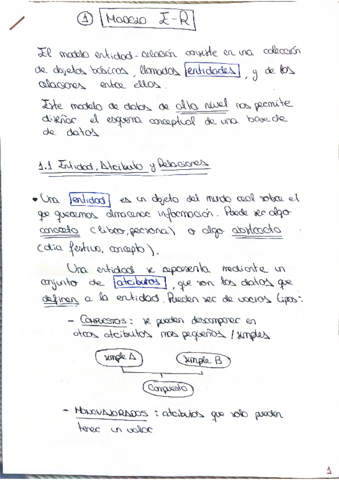 1 Modelo E-R
El modelo entidad-relación consiste en una colección
de objetos básicos, llamados entidades, y de las
relaciones entre ellos.
Este modelo de datos de alto nivel nos permite
diseñar el esquema conceptual de una base de
de datos
1.1 Entidad, Atributo y Relaciones
• Una entidad es un objeto del mundo real sobre el
que queremos almacenar información. Puede ser algo
concreto (libro, persona) o algo abstracto
(día festivo, concepto).
Una entidad se representa mediante un
conjunto de atributos, que son los datos que
definen a la entidad. Pueden ser de varios tipos:
- Compuestos: se pueden descomponer en
otros atributos mas pequeños / simples
simple A simple B
Compuesto
- Monovalorados: atributos que solo pueden
tener un valor
1